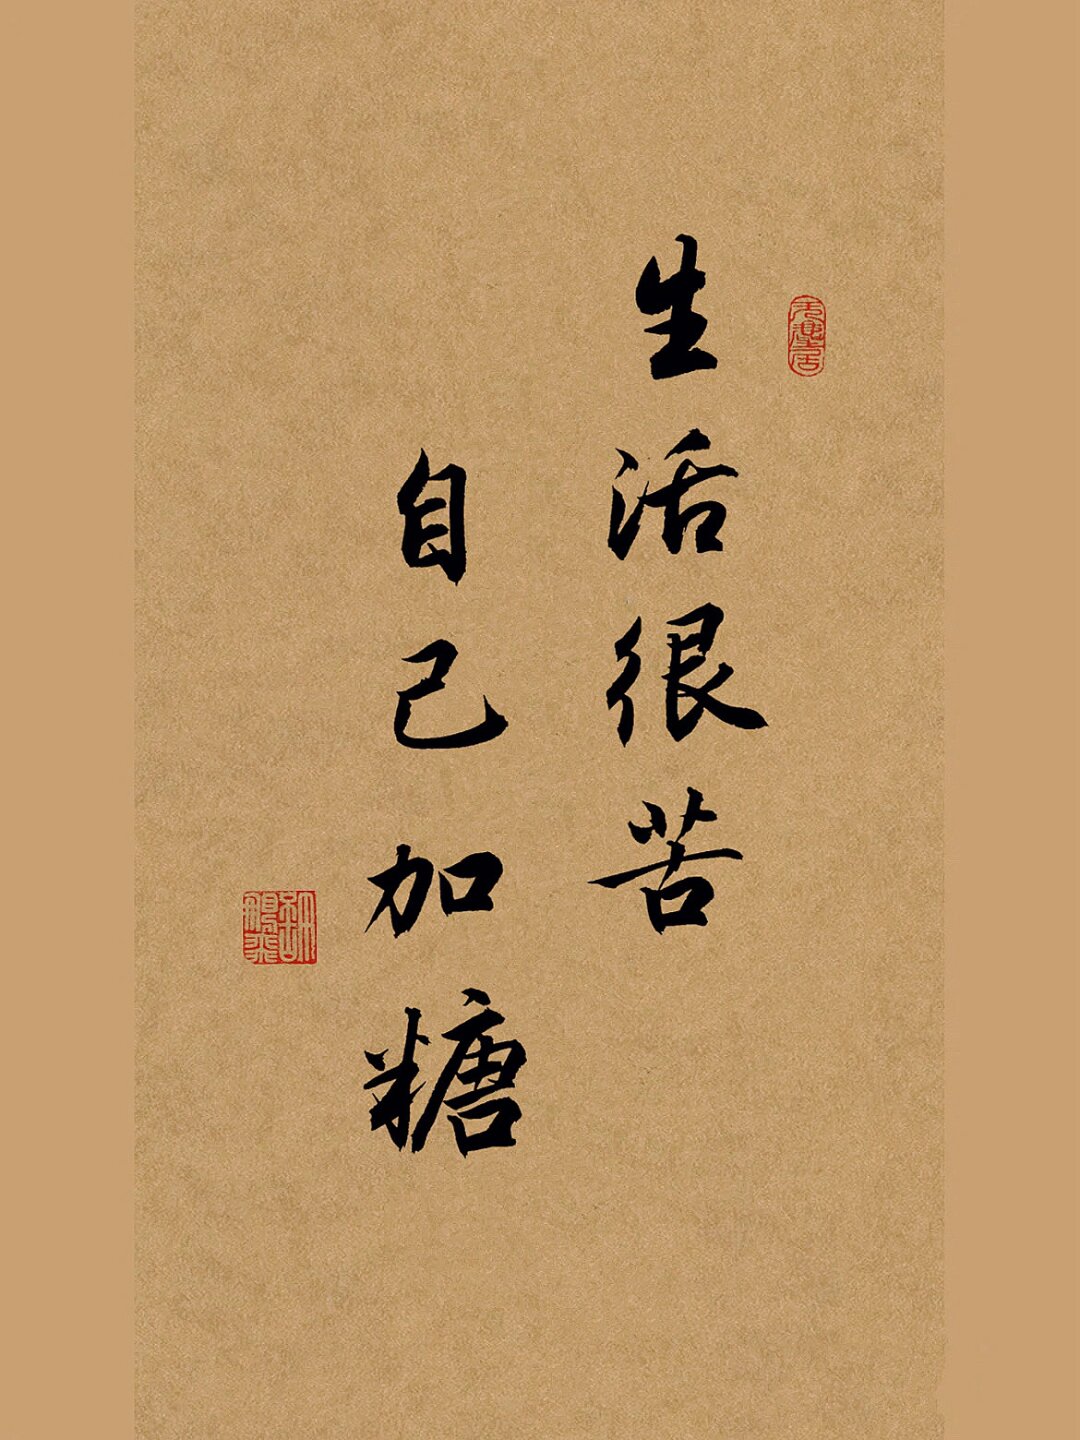 生活很苦
自己加糖